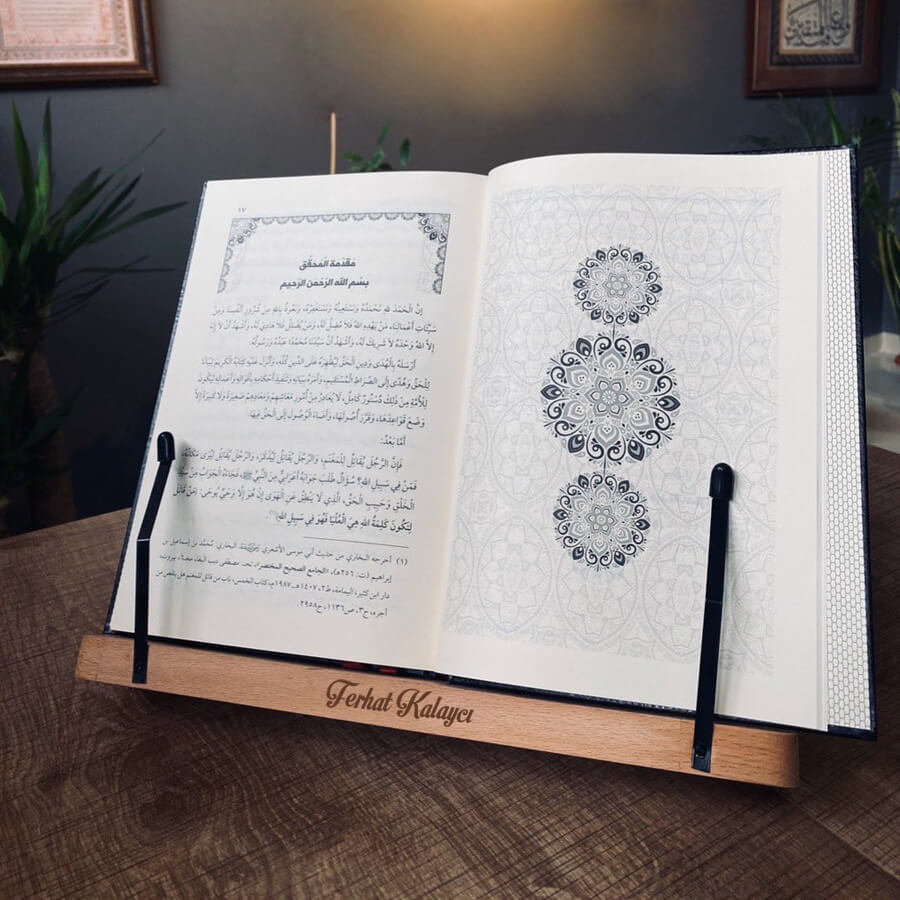 ١٧
مقدمة المحقق
بسم الله الرحمن الرحيم
إنَّ الْحَمْدَ للهِ نَحْمَدُهُ وَنَسْتَعِينُهُ وَنَسْتَغْفِرُهُ، وَنَعُوذُ بِاللهِ مِنْ شُرُورِ أَنْفُسِنَا وَمِنْ
سَيِّئَاتِ أَعْمَالِنَا، مَنْ يَهْدِهِ اللهُ فَلَا مُضِلَّ لَهُ، وَمَنْ يُضْلِلْ فَلَا هَادِيَ لَهُ، وَأَشْهَدُ أَنْ لَا إِلَهَ
إِلَّا اللهُ وَحْدَهُ لَا شَرِيكَ لَهُ، وَأَشْهَدُ أَنَّ سَيِّدَنَا مُحَمَّدًا عَبْدُهُ وَرَسُولُهُ.
أَرْسَلَهُ بِالْهُدَى وَدِينِ الْحَقِّ لِيُظْهِرَهُ عَلَى الدِّينِ كُلِّهِ، وَأَنْزَلَ عَلَيْهِ كِتَابَهُ الْكَرِيمَ تِبْيَانًا
لِلْحَقِّ وَهُدًى إِلَى الصِّرَاطِ الْمُسْتَقِيمِ، وَأَمَرَهُ بِبَيَانِهِ وَتَنْفِيذِ أَحْكَامِهِ بِأَقْوَالِهِ وَأَفْعَالِهِ لِيَكُونَ
لِلْأُمَّةِ مِنْ ذَلِكَ دُسْتُورٌ كَامِلٌ، لَا يُغَادِرُ مِنْ أُمُورِ مَعَاشِهِمْ وَمَعَادِهِمْ صَغِيرَةً وَلَا كَبِيرَةً إِلَّا
وَضَعَ قَوَاعِدَهَا، وَقَرَّرَ أُصُولَهَا، الْوُصُولِ إِلَى الْحَقِّ فِيهَا.
أَمَّا بَعْدُ:
فَإِنَّ الرَّجُلَ يُقَاتِلُ لِلْمَغْنَمِ، وَالرَّجُلَ يُقَاتِلُ لِيُذْكَرَ، وَالرَّجُلَ يُقَاتِلُ لِيُرَى مَكَانُهُ،
فَمَنْ فِي سَبِيلِ اللهِ؟ سُؤَالٌ طَلَبَ جَوَابَهُ أَعْرَابِيٌّ مِنَ النَّبِيِّ ﷺ، فَجَاءَهُ الْجَوَابُ مِنْ سَيِّدِ
الْخَلْقِ وَحَبِيبِ الْحَقِّ، الَّذِي لَا يَنْطِقُ عَنِ الْهَوَى إِنْ هُوَ إِلَّا وَحْيٌ يُوحَى: «مَنْ قَاتَلَ
لِتَكُونَ كَلِمَةُ اللهِ هِيَ الْعُلْيَا فَهُوَ فِي سَبِيلِ اللهِ»(١).
(١) أخرجه البخاري من حديث أبي موسى الأشعري رضي الله عنه. البخاري، مُحمَّد بن إسماعيل بن
إبراهيم (ت: ٢٥٦هـ)، «الجامع الصحيح المختصر»، تحـ: مصطفى ديب البغا، بيروت،
دار ابن كثير، اليمامة، ط٣، ١٤٠٧هـ-١٩٨٧م، كتاب الخمس، باب من قاتل للمغنم هل ينقص من
أجره، ج٣، ص١١٣٦، ح٢٩٥٨.
Ferhat Kalaycı